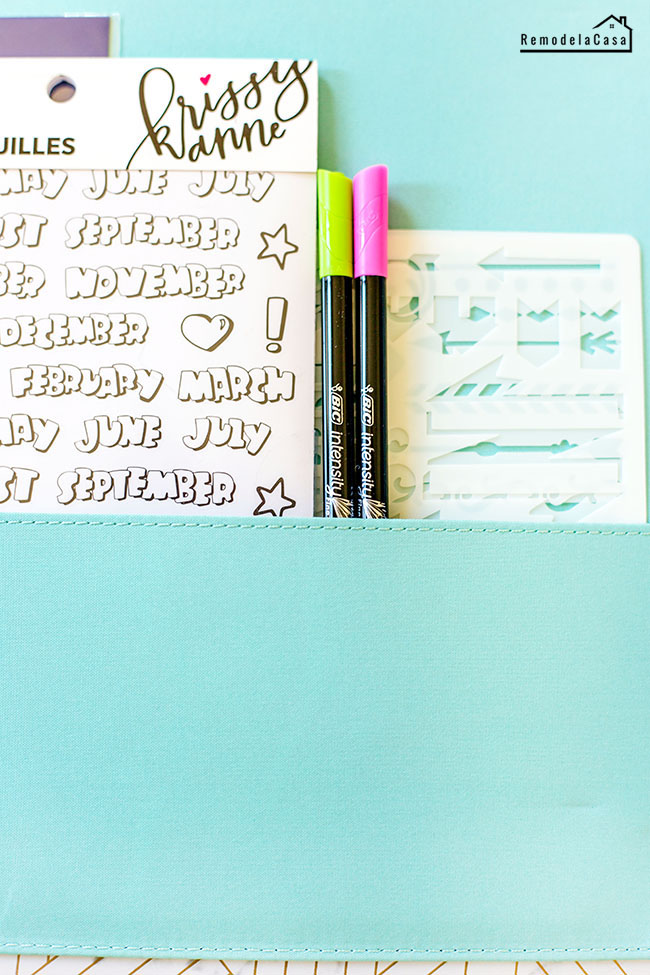 RemodelaCasa
krissy
anne
UILLES
MAY JUNE JULY
ST SEPTEMBER
NOVEMBER
DECEMBER
FEBRUARY MARCH
MAY JUNE JULY
ST SEPTEMBER
BIC intensity
BIC intensity